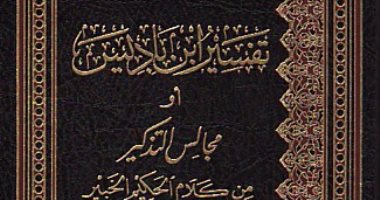 تفسير ابن باديس
أو
مجالس التذكير
من كلام الحكيم الخبير